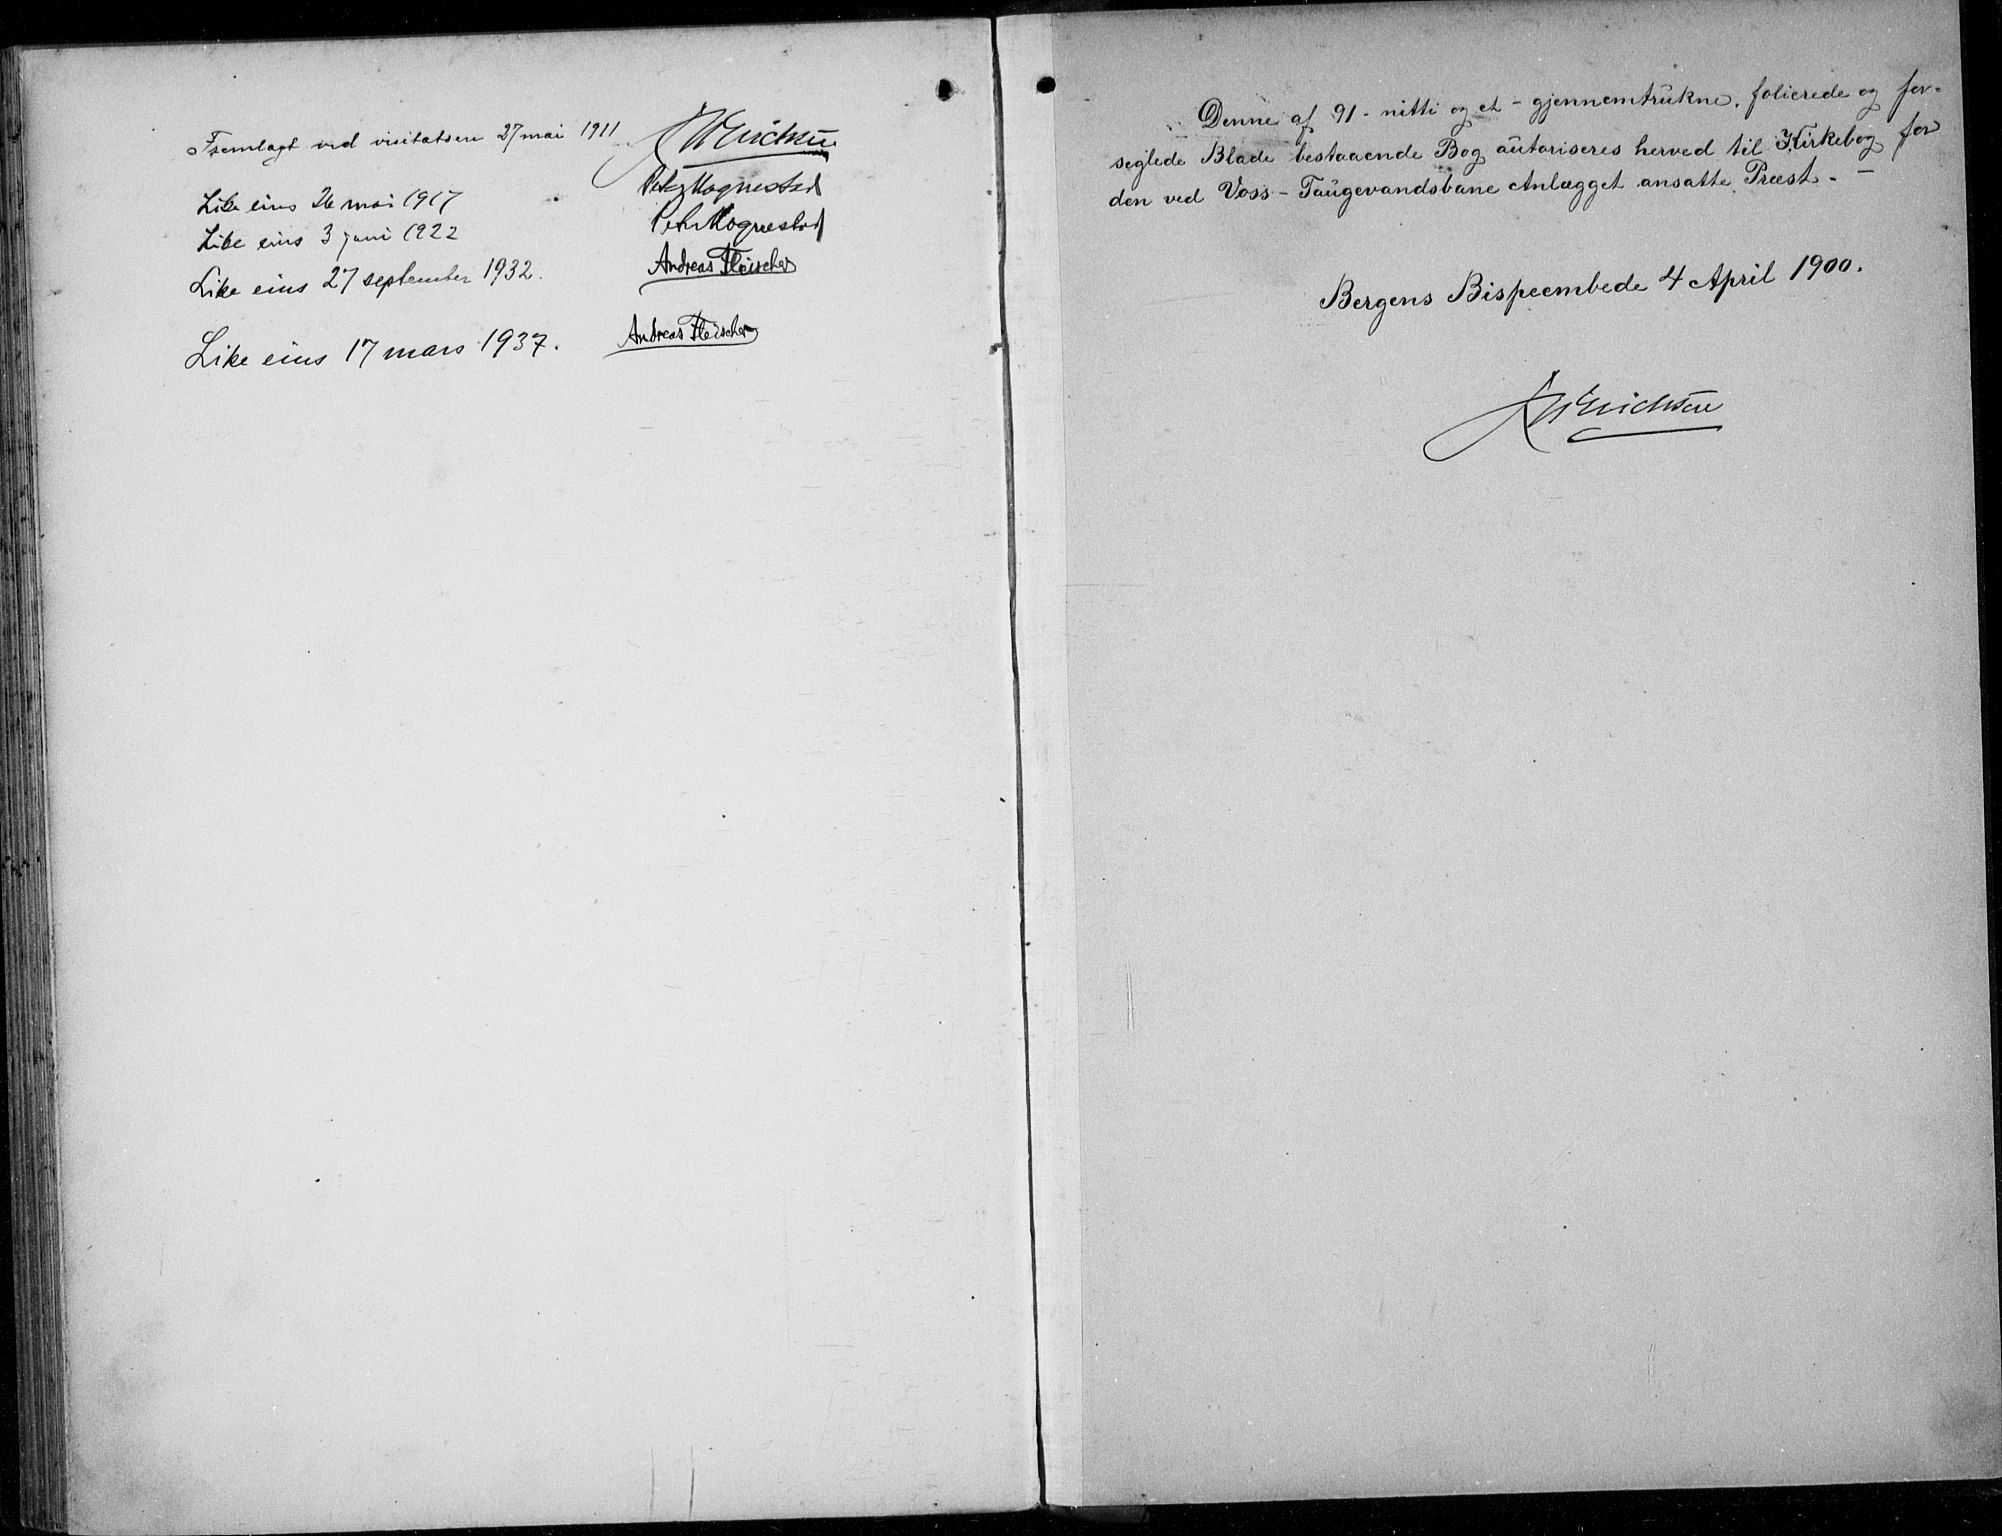 Fremlagt ved visitatsen 27 mai 1911 J W Erichsen
Like eins 26 mai 1917 Peter Hognestad
Like eins 3 juni 1922 Peter Hognestad
Like eins 27 september 1932. Andreas Fleischer
Like eins 17 mars 1937. Andreas Fleischer
Denne af 91 - nitti og et - gjennemtrukne, folierede og for-
seglede Blade bestaaende Bog autoriseres herved til Kirkebog for
den ved Voss - Taugevandsbane Anlægget ansatte Præst. -
Bergens Bispeembede 4 April 1900.
J W Erichsen